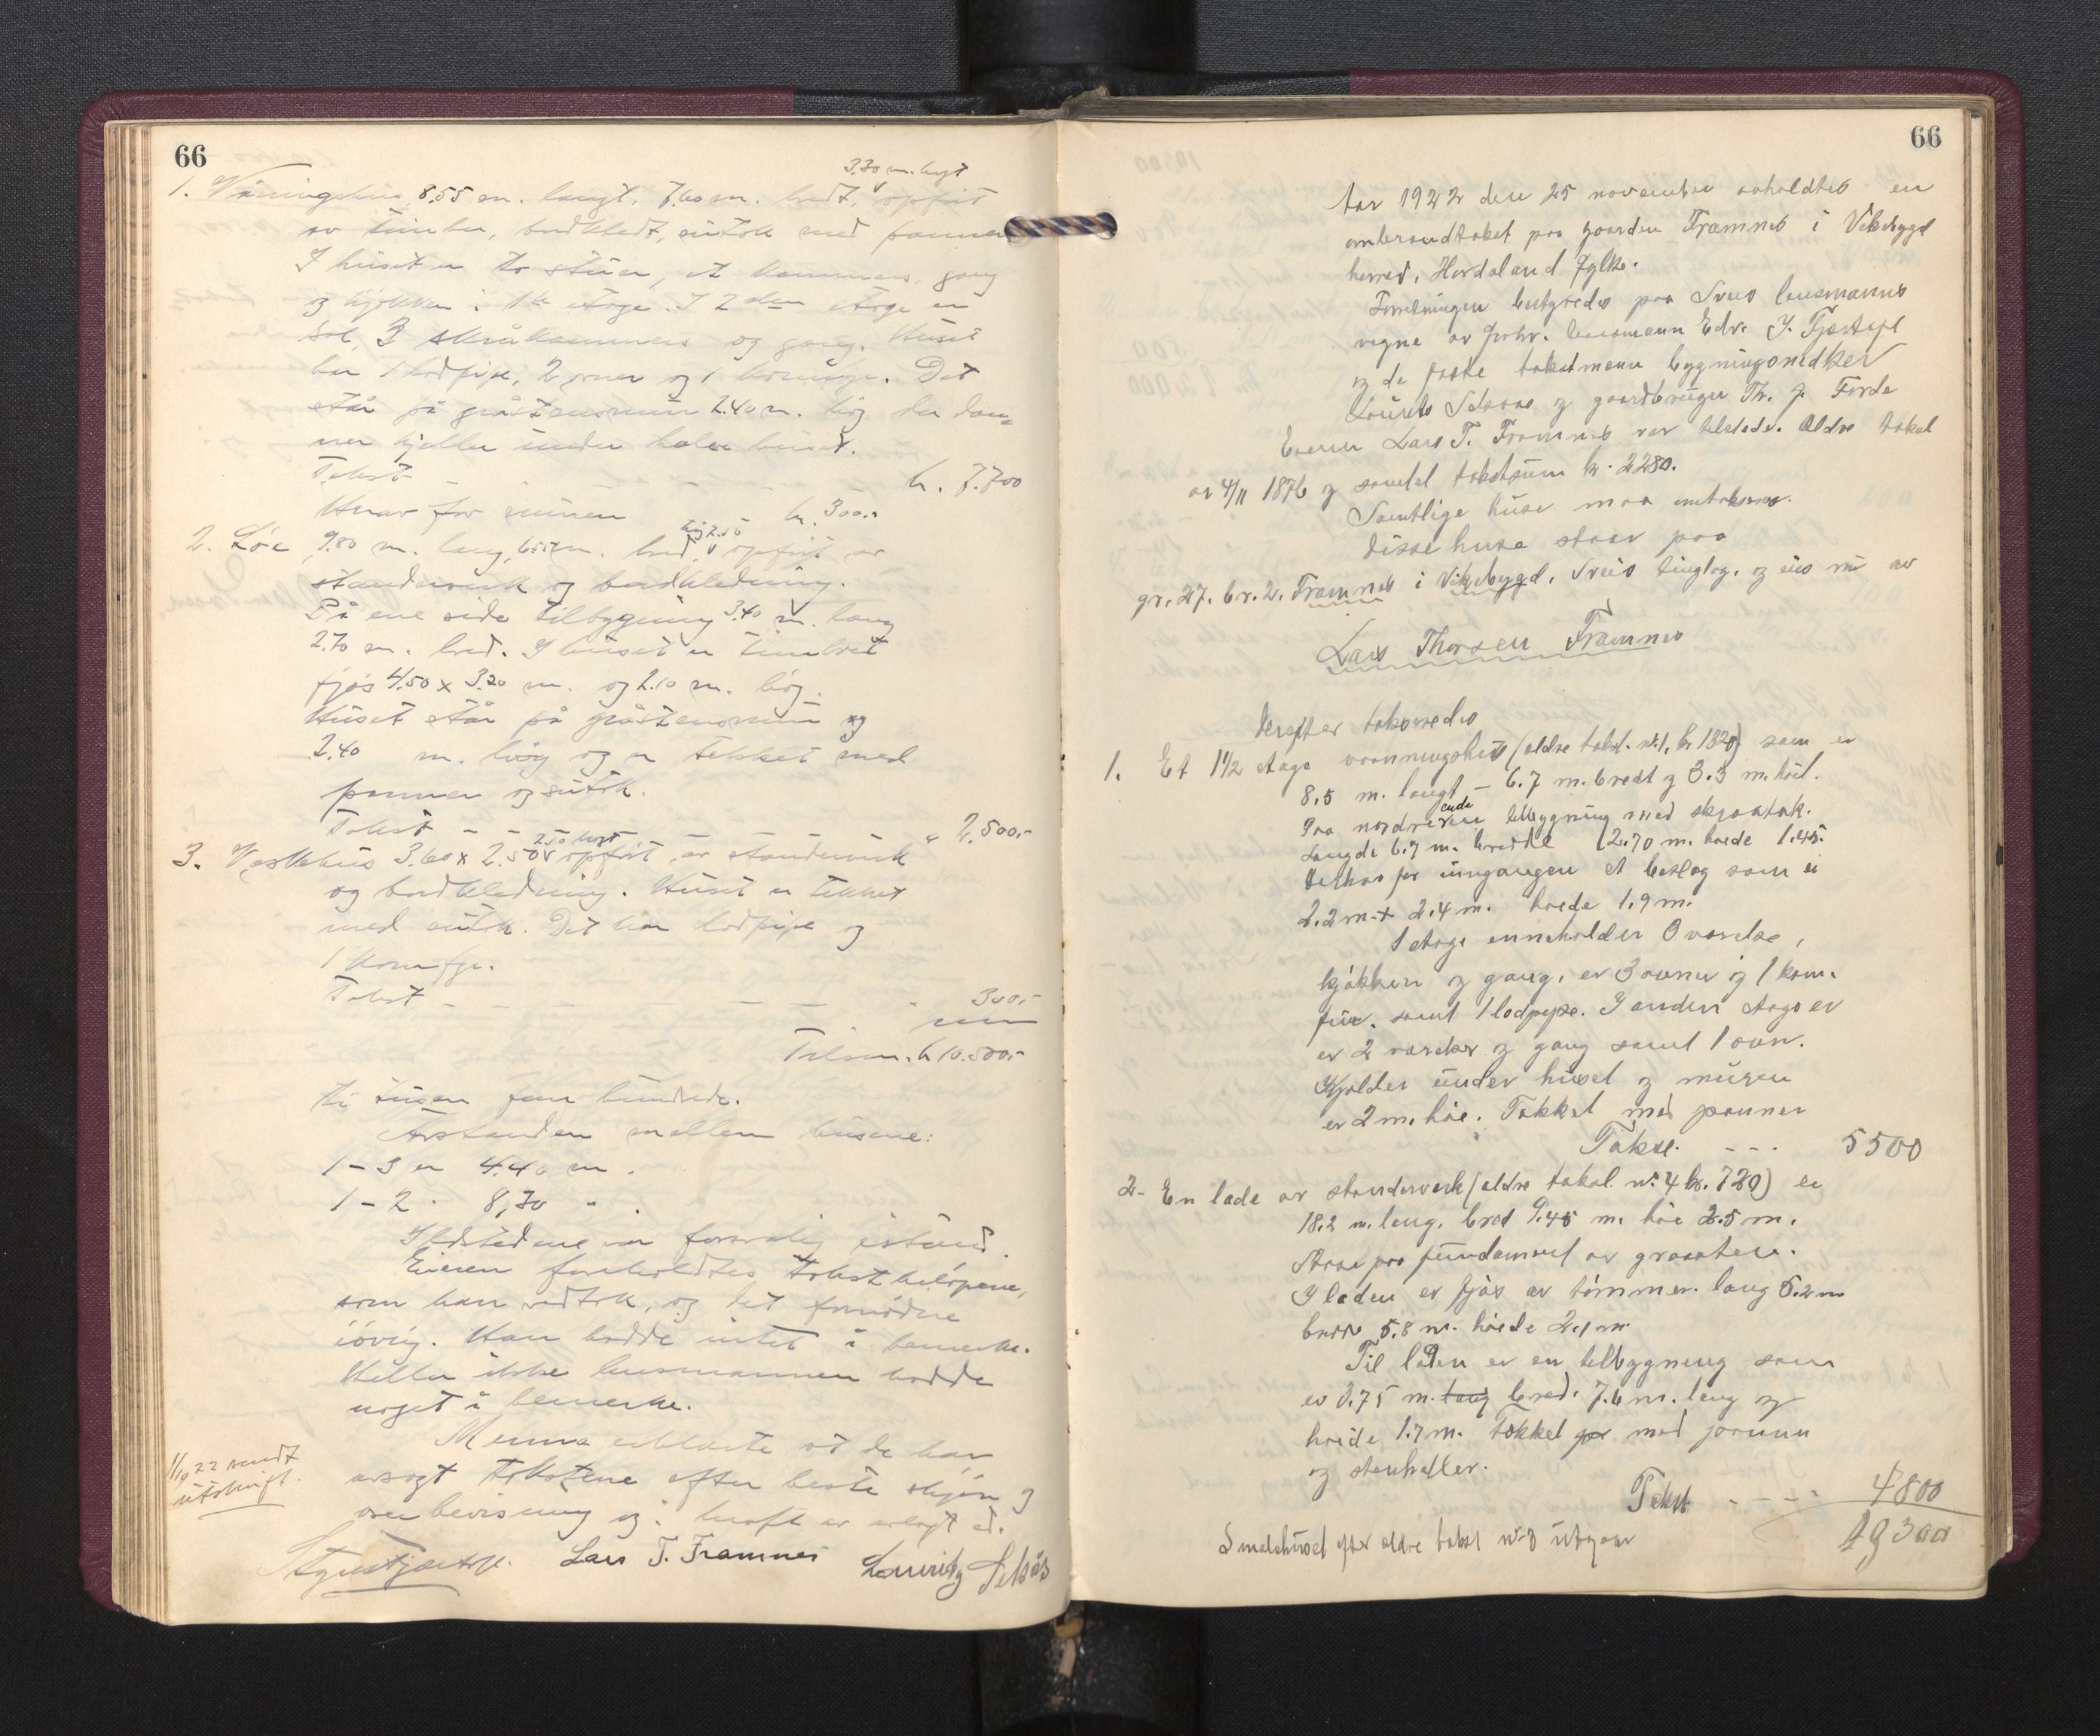 66
3.30 m. høyt
1. Våningshus, 8.55 m. langt, 7.60 m. bredt, v opført
av timber, bordkledt, sutak med panner
I huset er to stuer, et kammers, gang
og kjøkken i 1ste etage. I 2den etage er
sal, 3 skråkammers og gang. Huset
har 1 lodpipe, 2 ovner og 1 komfyr. Det
står på gråstensmur 2.40 m. høg der dan-
ner kjeller under hele huset.
Takst - - - - - kr. 7.700
Herav for muren kr. 300.-
høg 2.50
2. Løe 9.80 m. lang, m. bred, v opført av
standerverk og bordkledning.
På ene side tilbygning 3.40 m. lang
2.70 m. bred. I huset er timbret
fjøs 4.50 x 3.20 m. og 2.10 m. høg.
Huset står på gråstensmur og
2.40 m. høg og er tekket med
panner og sutak.
Takst - - - - " 2.500.-
2.50 høyt
3. Vaskehus 3.60 x 2.50 v opført av standerverk
og bordkledning. Huset er tekket
med sutak. Det har lodpipe og
1 komfyr.
Takst - - - - - 300.-
Tilsm. kr 10.500.-
ti tusen fem hundrede.
Avstanden mellem husene:
1 - 3 er 4.40 m.
1 - 2 " 8,30 "
Ildstedene var forsvarlig istand.
Eieren foreholdtes takstbeløpene,
som han vedtok, og det fornødne
iøvrig. Han hadde intet å bemerke.
Heller ikke lensmannen hadde
noget å bemerke.
Mennene erklærte at de har
avsagt takstene efter beste skjøn og
overbevisning og i kraft av avlagt ed.
11/10 22 sendt
utskrift.
Lars T. Framnes Lauritz Selsås
66
Aar 1922 den 25 november avholdtes en
ombrandtakst paa gaarden Framnes i Vikebygd
herred, Hordaland fylke.
Forretningen bestyredes paa Sveio lensmanns
vegne av Edv. J. Tjæstøl
og de faste takstmenn bygningssnedker
Laurits Selsaas og gaardbruger Th. J. Førde
Eieren Lars T. Framnes var tilstede. Ældre takst
av 4/11 1876 og samlet takstsum kr. 2280.
Samtlige huse maa omtakseres.
Disse huse staar paa
gr. 27. br. 2. Framnes i Vikebygd, Sveio tinglag, og eies nu av
Lars Thorsen Framnes
Derefter taksertes
1. Et 1 1/2 etage vaaningshus (ældre takst. nr. 1, kr 1820) som er
8.5 m. langt - 6.7 m. bredt og 3.3 m. høit.
Paa nordre ende tilbygning med skraatak.
Længde 6.7 m. bredde 2.70 m. høide 1.45.
Utenfor inngangen et beslag som er
2.2 m. + 2.4 m. høide 1.9 m.
1 etage inneholder 3 værelse,
kjøkken og gang, er 3 ovner og 1 kom-
fur, samt 1 lodpipe. I anden etage er
er 2 værelser og gang samt 1 ovn.
Kjelder under huset og muren
er 2 m. høi. Tækket med panner
Takst. - - - 5500
2. En lade av standerverk (ældre takst nr. 4 kr. 720) er
18.2 m. lang, bred 9.45 m. høi 2.5 m.
Staar paa fundament av graasten.
I laden er fjøs av tømmer. lang 5.2 m
bredde 5.8 m. høide 2.1 m.
Til laden er en tilbygning som
er 3.75 m. lang bred. 7.6 m. lang og
høide 1.7 m. Tækket med panner
og stenheller.
Takst - - - - 4800
Smalehuset efter ældre takst nr. 3 utgaar 10300